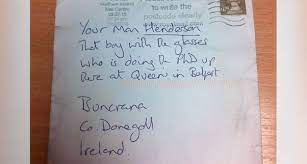 to write the
postcode clearly
Your Man Henderson
That boy with the glasses
who is doing the PhD up
here at Queen's in Belfast
Buncrana
Co. Donegall
Ireland.